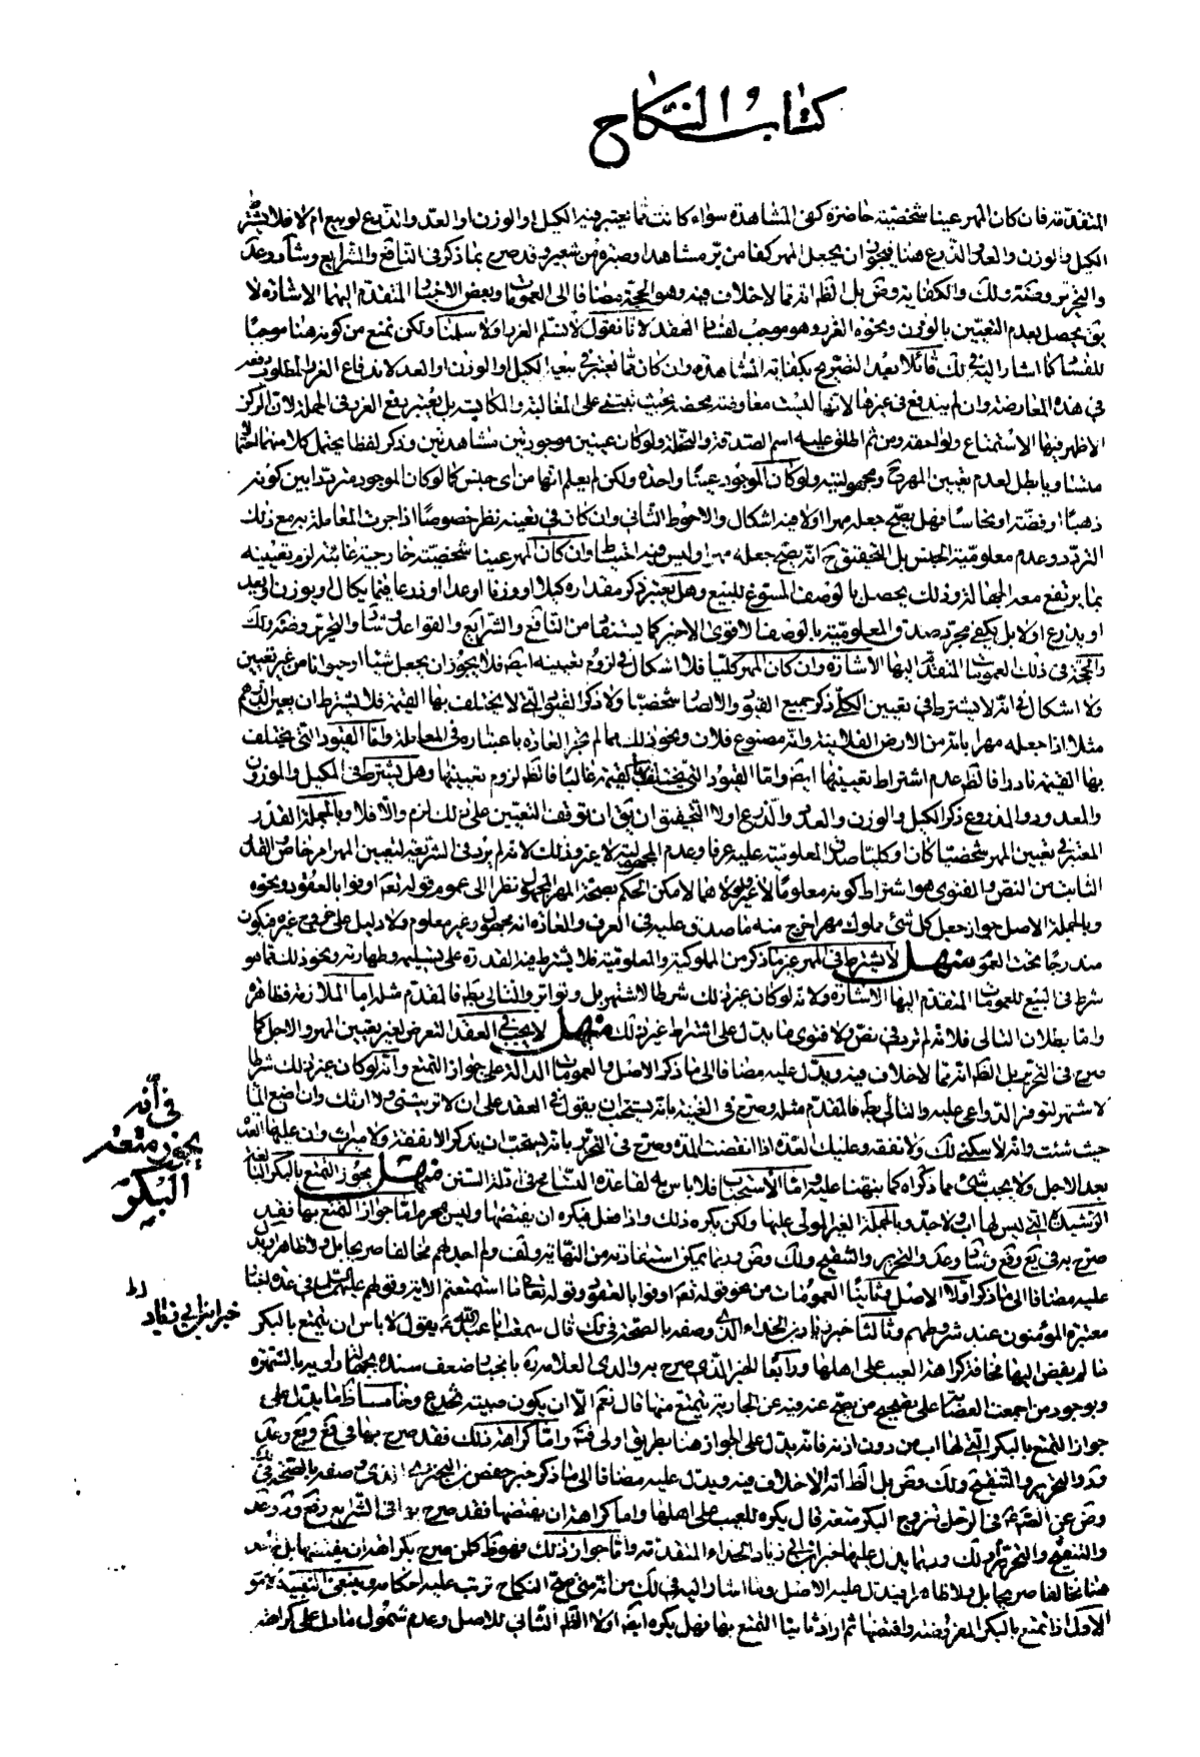 كتاب النكاح
المتقدمة فان كان المهر عينا شخصية حاضرة كفى المشاهدة سواء كانت مما يعتبر فيه الكيل او الوزن او العد والذرع لو بيع ام لا فلا يشترط
الكيل والوزن والعد والذرع هنا فيجوز ان يجعل المهر كفا من بر مشاهد او صبرة من شعير وقد صرح بما ذكر في النافع والشرايع وشاد وعد
والتحرير وضة ولك والكفاية وض بل الظ انه مما لا خلاف فيه وهو الحجة مضافا الى العمومات وبعض الاخبار المتقدم اليهما الاشارة لا
يق يحصل بعدم التعيين بالوزن ونحوه الغرر وهو موجب لفساد العقد لانا نقول لا نسلم الغرر ولا سلمنا ولكن نمنع من كونه هنا موجبا
للفساد كما اشار اليه في لك قائلا بعد التصريح بكفاية المشاهدة وان كان مما يعتبر في بيعه الكيل او الوزن او العد لاندفاع الغرر المطلوب دفعه
في هذه المعاوضة وان لم يندفع في غيرها لانها ليست معاوضة محضة بحيث تبتنى على المغالبة والمكايسة بل يعتبر دفع الغرر في الجملة لان الركن
الاظهر فيها الاستمتاع ولواحقه ومن ثم اطلق عليه اسم الصدقة والنحلة ولو كان عينين موجودتين مشاهدتين وذكر لفظا يحتمل كلا منهما احتمالا
متساويا بطل لعدم تعيين المهر ح ومجهوليته ولو كان الموجود عينا واحدة ولكن لم يعلم انها من اى جنس كما لو كان الموجود مترددا بين كونه
ذهبا او فضة او نحاسا فهل يصح جعله مهرا اولا فيه اشكال والاحوط الثاني وان كان في تعينه نظر خصوصا اذا جرت المعاملة به مع ذلك
التردد وعدم معلومية الجنس بل التحقيق ح انه يصح جعله مهرا وليس فيه احتياط وان كان المهر عينا شخصية خارجية غائبة لزم تعيينه
بما يرتفع معه الجهالة وذلك يحصل بالوصف المسوغ للبيع وهل يعتبر ذكر مقداره كيلا او وزنا او عدا او ذرعا فيما يكال او يوزن او يعد
او يذرع اولا بل يكفى مجرد صدق المعلومية بالوصف الاقوى الاخير كما يستفاد من النافع والشرايع والقواعد وشاد والتحرير وضة ولك
والحجة في ذلك العمومات المتقدم اليها الاشارة وان كان المهر كليا فلا اشكال في لزوم تعيينه ايضا فلا يجوز ان يجعل شيئا او حيوانا من غير تعيين
ولا اشكال في انه لا يشترط في تعيين الكلى ذكر جميع القيود والاوصاف شخصيا ولا ذكر القيود التي لا يختلف بها القيمة فلا يشترط ان يعين الدرهم
مثلا اذا جعله مهرا بانه من الارض الفلانية وانه مصنوع فلان ونحو ذلك مما لم تجر العادة باعتباره في المعاملة واما القيود التي يختلف
بها القيمة نادرا فالظ عدم اشتراط تعيينها ايضا واما القيود التي يختلف بها القيمة غالبا فالظ لزوم تعيينها وهل يشترط في المكيل والموزون
والمعدود والمذروع ذكر الكيل والوزن والعد والذرع اولا التحقيق ان يق ان توقف التعيين على ذلك لزم والا فلا وبالجملة القدر
المعتبر في تعيين المهر شخصيا كان او كليا صدق المعلومية عليه عرفا وعدم المجهولية لا غير وذلك لانه لم يرد في الشريعة لتعيين المهر امر خاص بل القدر
الثابت من النص والفتوى هو اشتراط كونه معلوما لا غير ولولاهما لامكن الحكم بصحة المهر المجهول نظرا الى عموم قوله تعم اوفوا بالعقود ونحوه
وبالجملة الاصل جواز جعل كل شئ مملوك مهرا خرج منه ما صدق عليه في العرف والعادة انه مجهول وغير معلوم ولا دليل على خروج غيره فيكون
مندرجا تحت العموم منهل لا يشترط في المهر غير ما ذكر من المملوكية والمعلومية فلا يشترط فيه القدرة على تسليمه وطهارته ونحو ذلك مما هو
شرط في البيع للعمومات المتقدم اليها الاشارة ولانه لو كان غير ذلك شرطا لاشتهر بل وتواتر والتالي بط فالمقدم مثله اما الملازمة فظاهرة
واما بطلان التالي فلانه لم نرد في نص ولا فتوى ما يدل على اشتراط غير ذلك منهل لا يجب في العقد التعرض لغير تعيين المهر والاجل كما
صرح في التحرير بل الظ انه مما لا خلاف فيه ويدل عليه مضافا الى ما ذكر الاصل والعمومات الدالة على جواز التمتع وانه لو كان غير ذلك شرطا
لاشتهر لتوفر الدواعي عليه والتالي بط فالمقدم مثله وصرح في الغنية بانه يستحب ان يقول في العقد على ان لا ترثيني ولا ارثك وان اضع الماء
حيث شئت وانه لا سكنى لك ولا نفقة وعليك العدة اذا انقضت المدة وصرح في التحرير بانه يستحب ان يذكر الا نفقة ولا ميراث وان عليها العدة
بعد الاجل ولا يجب شئ مما ذكراه كما نبهنا عليه واما الاستحباب فلا باس به لقاعدة التسامح في ادلة السنن منهل يجوز التمتع بالبكر البالغة
الرشيدة التي ليس لها اب ولا جد وبالجملة الغير المولى عليها ولكن يكره ذلك واذا فعل فيكره ان يفتضها وليس بمحرم اما جواز التمتع بها فقد
صرح به في يع وقع وشاد وعد والتحرير والتنقيح ولك وض وربما يمكن استفادته من النهاية ولف ولم اجد لهم مخالفا صريحا بل ولا ظاهرا ويدل
عليه مضافا الى ما ذكر اولا الاصل وثانيا العمومات من نحو قوله تعم اوفوا بالعقود وقوله تعم فما استمتعتم الاية وقولهم عليهم السلام في عدة اخبار
معتبرة المؤمنون عند شروطهم وثالثا خبر زياد بن ابى الحذاء الذي وصفه بالصحة في لك قال سمعت ابا عبد الله ع يقول لا باس ان يتمتع بالبكر
ما لم يفض اليها مخافة كراهة العيب على اهلها ورابعا الخبر الذي صرح به والدى العلامة ره بانجبار ضعف سنده بجهالة راويه بالشهرة
وبوجود من اجمعت العصابة على تصحيح ما يصح عنه فيه عن الجارية يتمتع منها قال نعم الا ان يكون صبية تخدع وخامسا ظ ما يدل على
جواز التمتع بالبكر التي لها اب من دون اذنه فانه يدل على الجواز هنا بطريق اولى فتم واما كراهة ذلك فقد صرح بها في قع ويع وعد
وشاد والتحرير والتنقيح ولك وض بل الظ انه الا خلاف فيه ويدل عليه مضافا الى ما ذكر خبر حفص بن البختري الذي وصفه بالصحة في لك
وض عن الصادق ع في الرجل يتزوج البكر متعة قال يكره للعيب على اهلها واما كراهة ان يفتضها فقد صرح بها في الشرايع وقع وشاد وعد
والتنقيح والتحرير ولك وربما يدل عليها خبر ابن ابي زياد الحذاء المتقدمة واما جواز ذلك فهو ظ كل من صرح بكراهة ان يفتضها بل لم نجد
هنا مخالفا صريحا بل ولا ظاهرا ويدل عليه الاصل وما اشار اليه في لك من انه متى صح النكاح ترتب عليه احكامه وينبغي التنبيه لامور
الاول اذا تمتع بالبكر المفروضة وافتضها ثم اراد ثانيا التمتع بها فهل يكره ايضا اولا الظ الثاني للاصل وعدم شمول ما دل على كراهة
في انه
يجوز متعة
البكر
خبر ابن ابي زياد